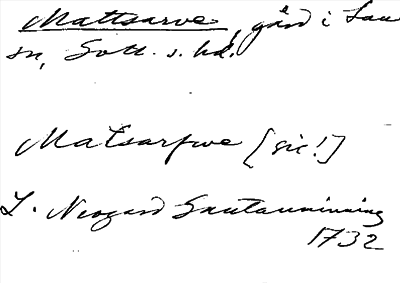 Mattsarve, gård i Lau
sn, Gotl. s. hd.
Matsarfwe [sic!]
L. Neogard Gautauminning
1732